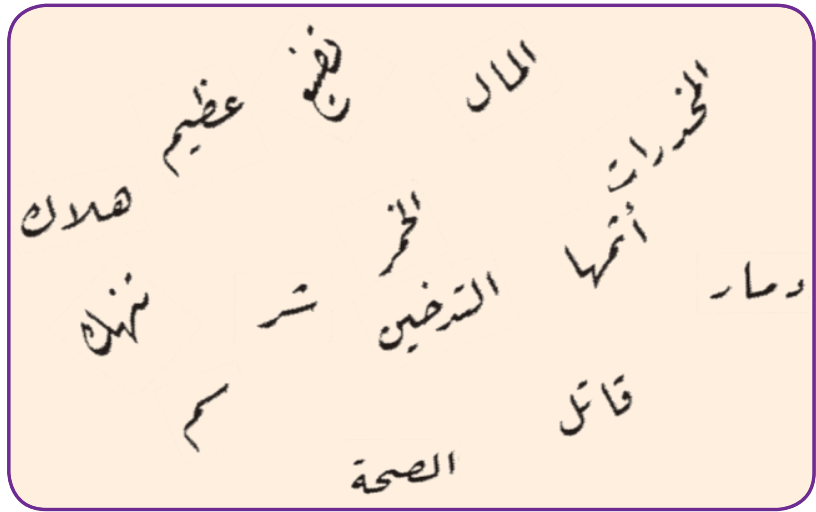 تضيع
المال
المخدرات
عظيم
هلاك
الخمر
أثمها
دمار
تنهك
شر
التدخين
سم
قاتل
الصحة